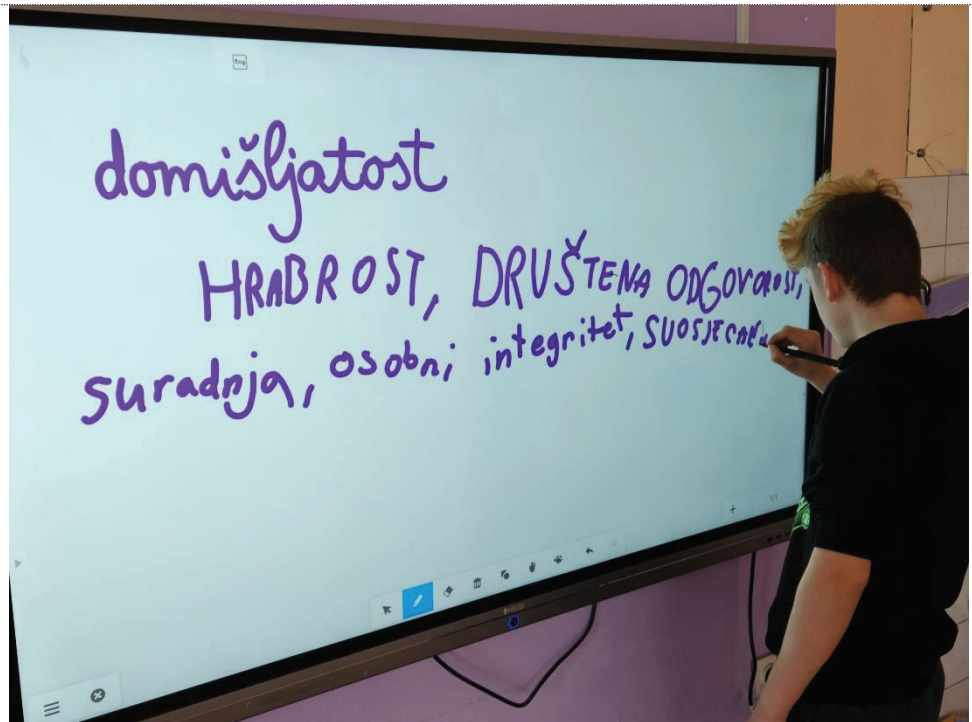 domišljatost
HRABROST, DRUŠTENA ODGOVOROST,
suradnja, osobni integritet,
1/1